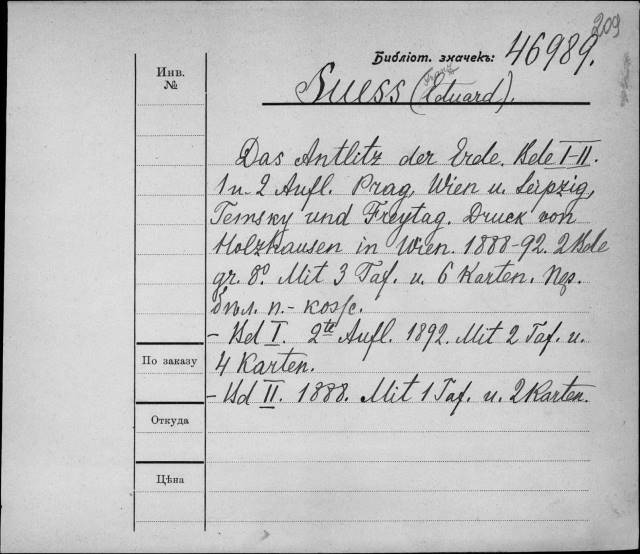 209
Библіот. значекъ: 46989.
Инв.
№
Suess (Eduard).
Das Antlitz der Erde. Bde I-II.
1 u. 2 Aufl. Prag, Wien u. Leipzig,
Temsky und Freytag. Druck von
Holzhausen in Wien. 1888-92. 2 Bde
gr. 8º. Mit 3 Taf. u. 6 Karten. Пер.
бѣл. п.- кож.
- Bd I. 2te Aufl. 1892. Mit 2 Taf. u.
По заказу
4 Karten.
- Bd II. 1888. Mit 1 Taf. u. 2 Karten.
Откуда
Цѣна